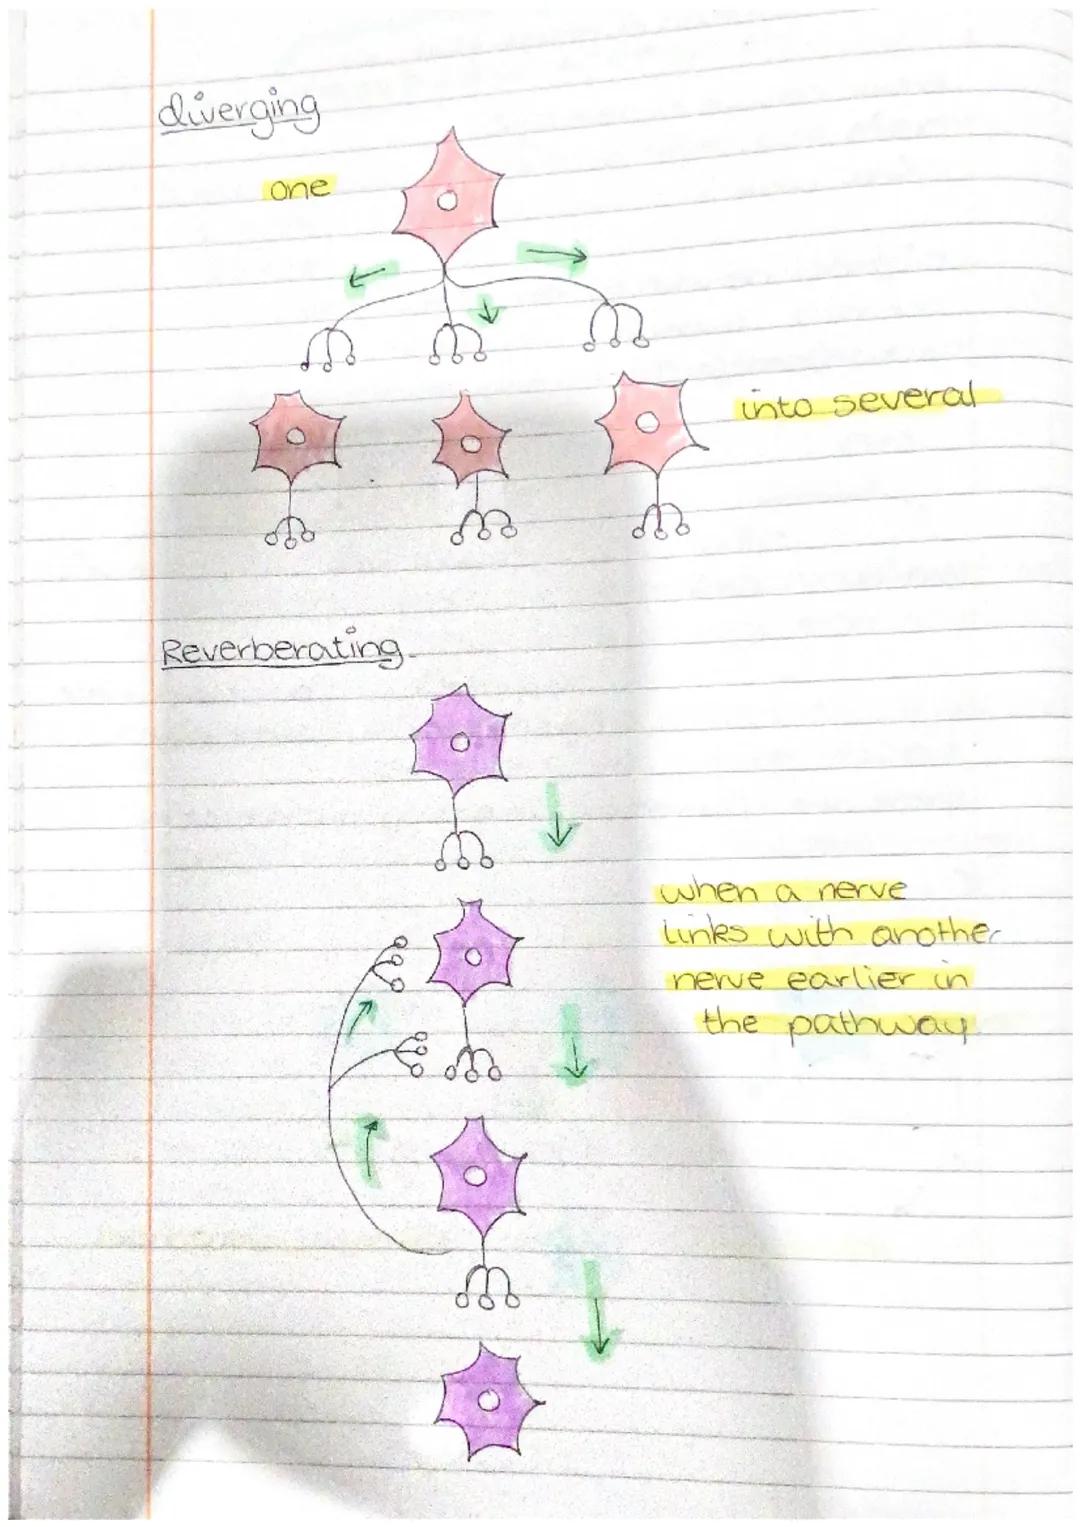 diverging
one
into several
Reverberating
when a nerve
links with another
nerve earlier in
the pathway